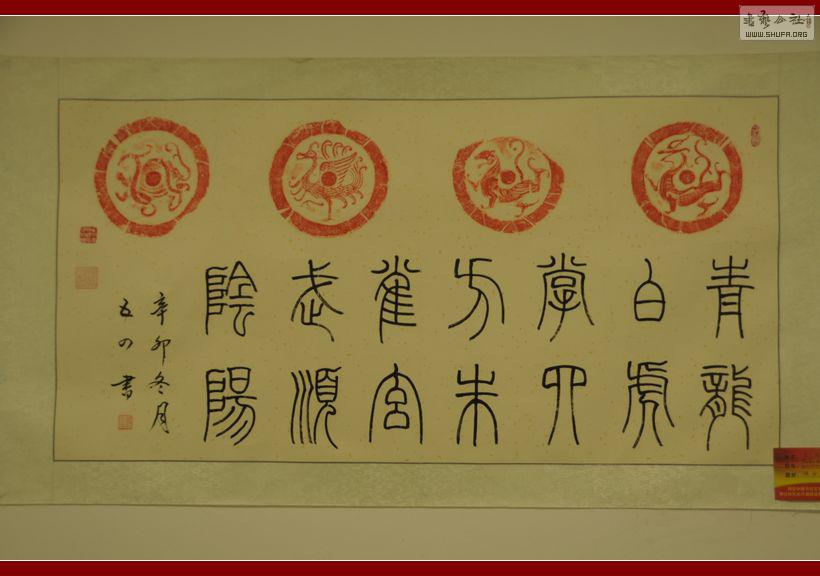 青龍
白虎
掌四
方朱
雀玄
武順
陰陽
辛卯冬月
書
書藝公社
WWW.SHUFA.ORG